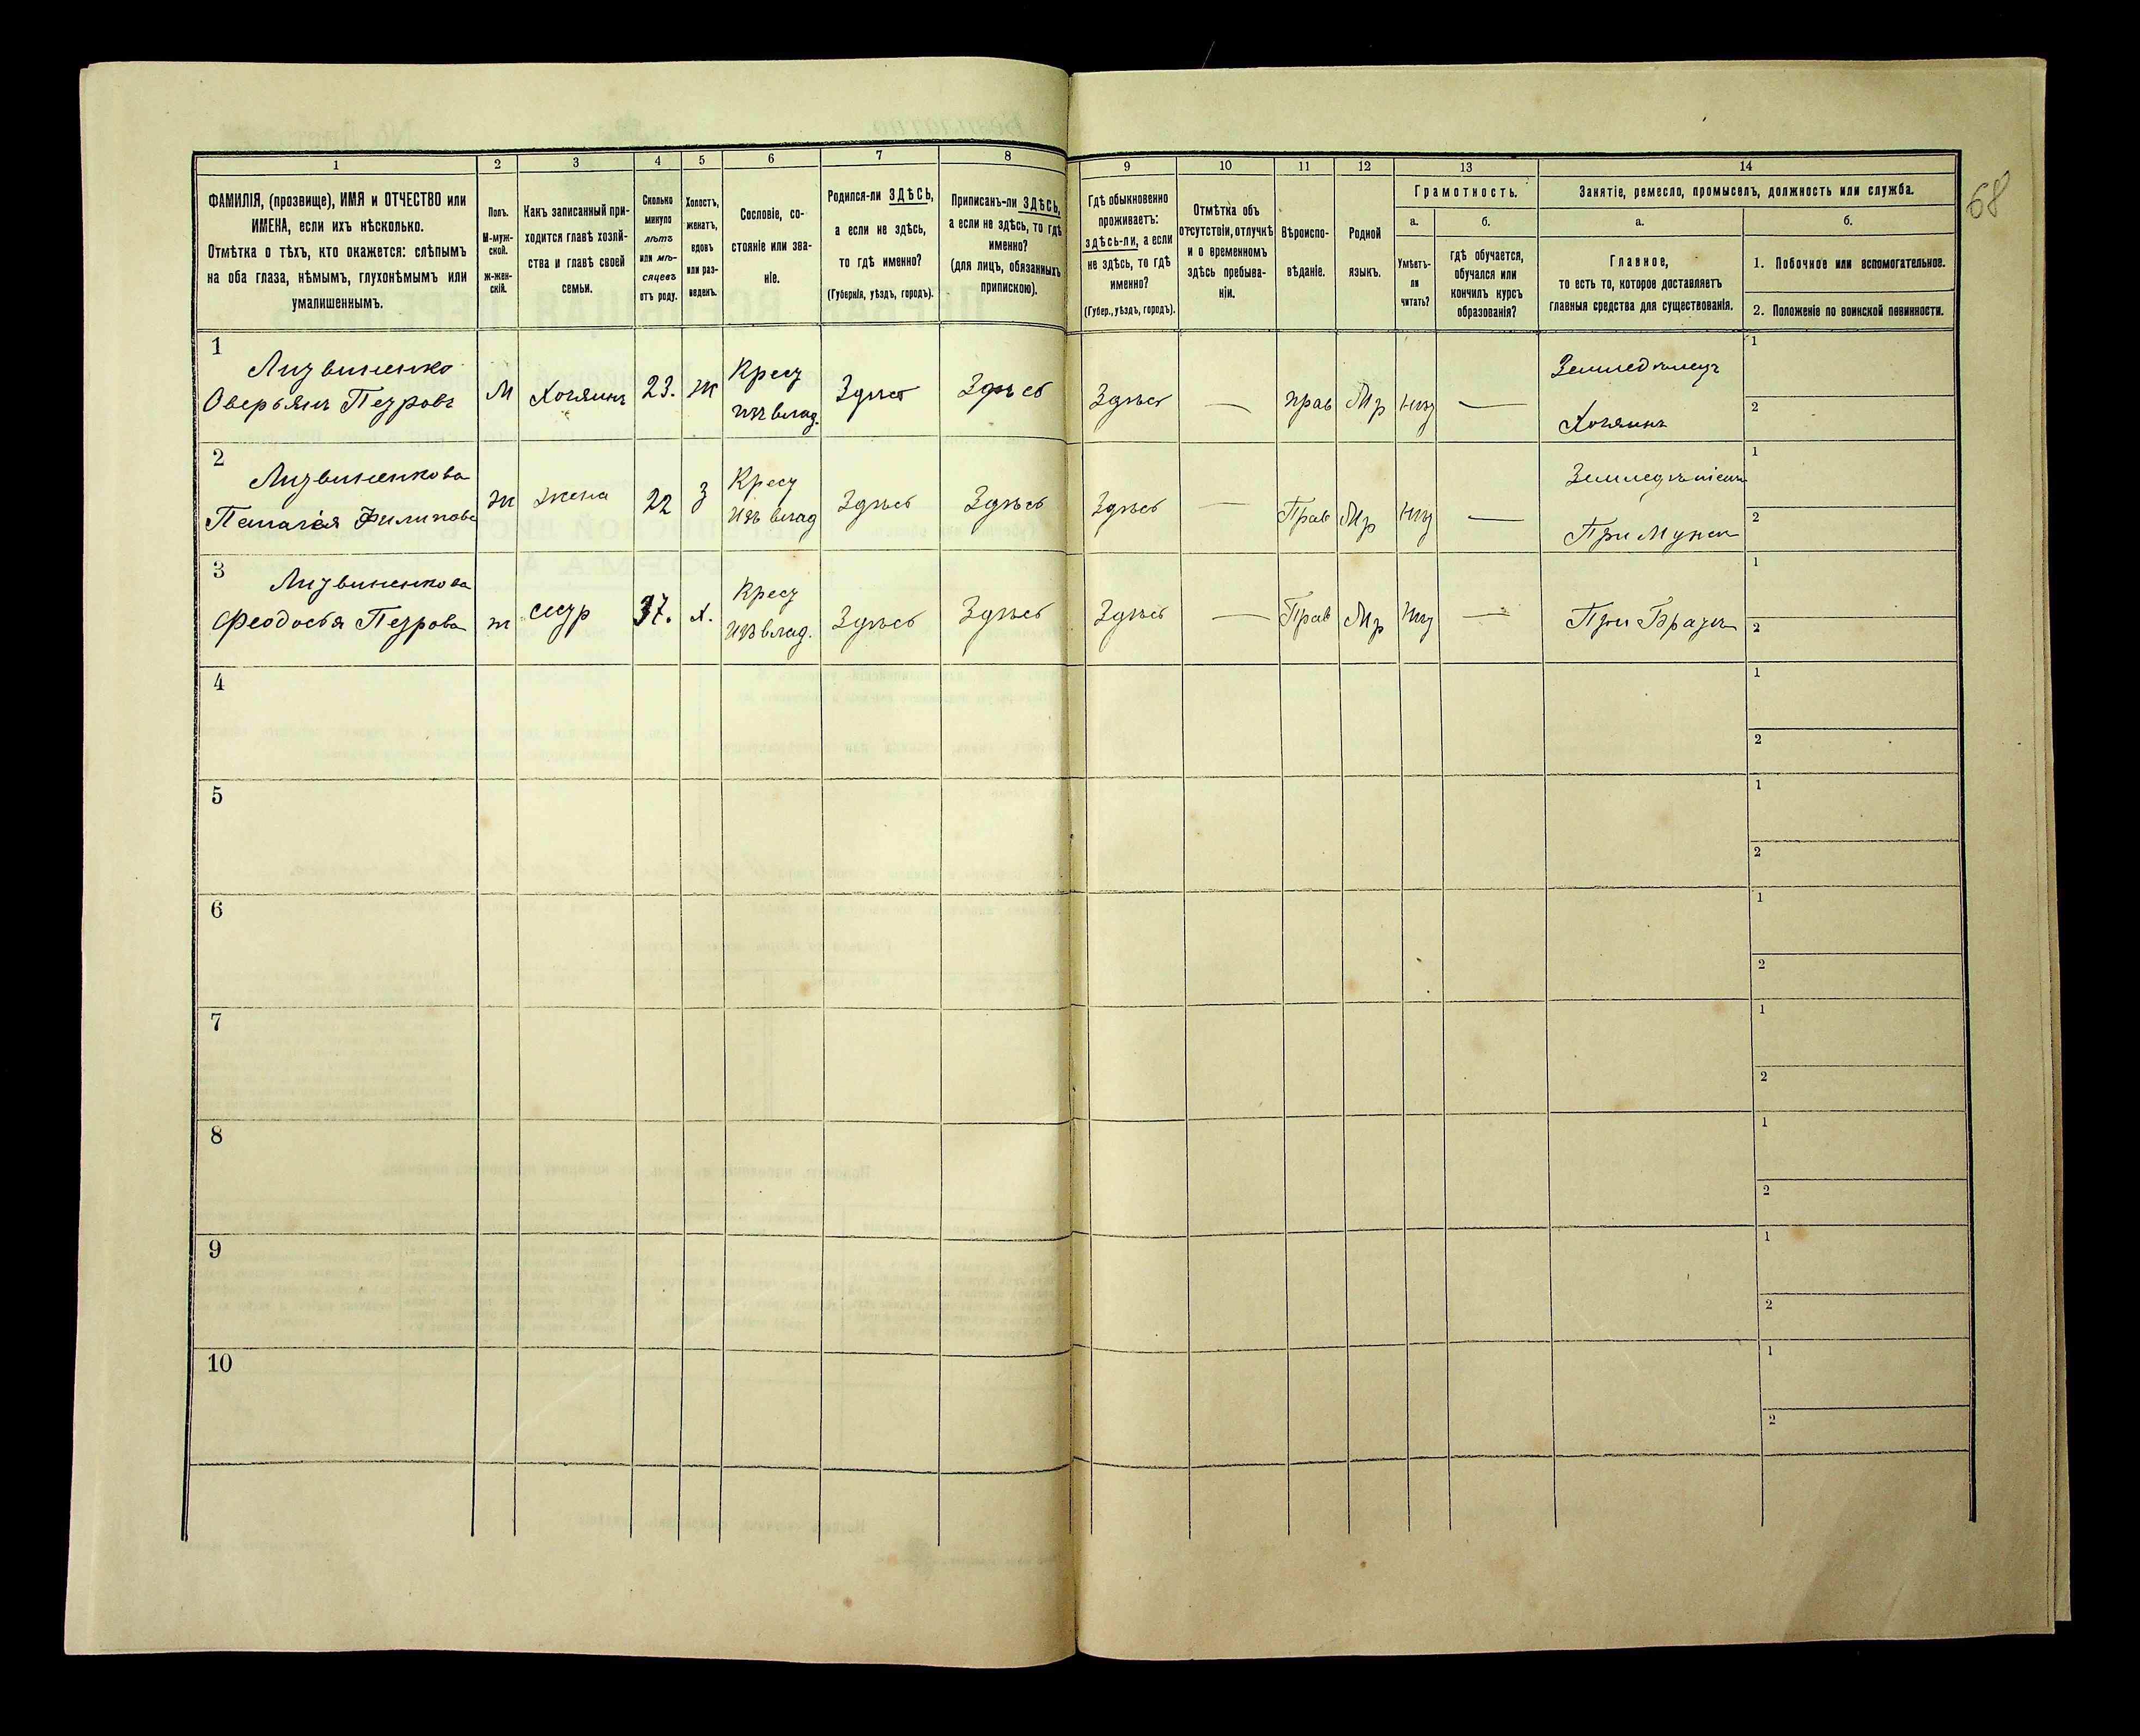 1 2 3 4 5 6 7 8 9 10 11 12 13 14
ФАМИЛІЯ, (прозвище), ИМЯ и ОТЧЕСТВО или
ИМЕНА, если ихъ нѣсколько.
Отмѣтка о тѣхъ, кто окажется: слѣпымъ
на оба глаза, нѣмымъ, глухонѣмымъ или
умалишеннымъ.
Полъ.
М-муж-
ской.
ж-жен-
скій.
Какъ записанный при-
ходится главѣ хозяй-
ства и главѣ своей
семьи.
Сколько
минуло
лѣтъ
или мѣ-
сяцевъ
отъ роду.
Холостъ,
женатъ,
вдовъ
или раз-
веденъ.
Сословіе, со-
стояніе или зва-
ніе.
Родился-ли ЗДѢСЬ,
а если не здѣсь,
то гдѣ именно?
(Губернія, уѣздъ, городъ).
Приписанъ-ли ЗДѢСЬ,
а если не здѣсь, то гдѣ
именно?
(для лицъ, обязанныхъ
припискою).
Гдѣ обыкновенно
проживаетъ:
здѣсь-ли, а если
не здѣсь, то гдѣ
именно?
(Губер., уѣздъ, городъ).
Отмѣтка объ
отсутствіи, отлучкѣ
и о временномъ
здѣсь пребыва-
ніи.
Вѣроиспо-
вѣданіе.
Родной
языкъ.
Грамотность.
а.
Умѣетъ-
ли
читать?
б.
гдѣ обучается,
обучался или
кончилъ курсъ
образованія?
Занятіе, ремесло, промыселъ, должность или служба.
а.
Главное,
то есть то, которое доставляетъ
главныя средства для существованія.
б.
1. Побочное или вспомогательное.
2. Положеніе по воинской повинности.
68
1
Литвиненко
Оверьянъ Петровъ
М
Хозяинъ
23.
ж
Крест
изъ влад.
Здѣсь
Здѣсь
Здѣсь
—
прав
Мр
нѣт
—
Земледѣлецъ
Хозяинъ
1
2
2
Литвиненкова
Пелагія Филипова
ж
жена
22
З
Крест
Изъ влад
Здѣсь
Здѣсь
Здѣсь
—
Прав
Мр
Нѣт
—
При Мужѣ
1
2
3
Литвиненкова
Феодосья Петрова
ж
сестр
37.
х.
Крест
Изъ влад.
Здѣсь
Здѣсь
Здѣсь
—
Прав
Мр
Нѣт
—
При Братѣ
1
2
4
1
2
5
1
2
6
1
2
7
1
2
8
1
2
9
1
2
10
1
2